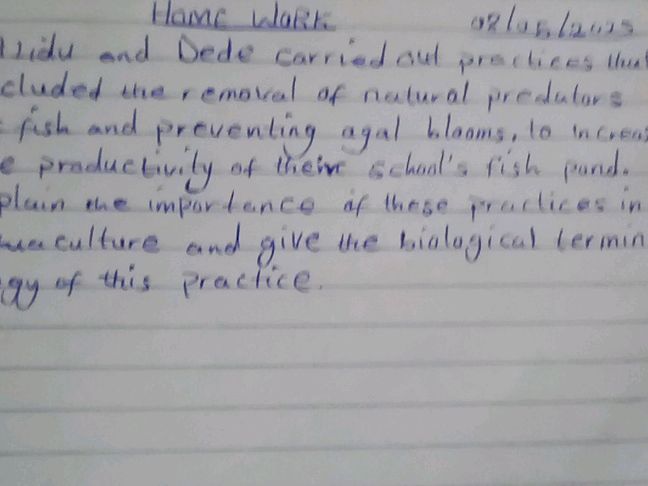 Home Work 08/05/2025
and Dede carried out practices that
cluded the removal of natural predators
fish and preventing agal blooms, to increas
e productivity of their school's fish pond.
plain the importance of these practices in
culture and give the biological termin
gy of this practice.